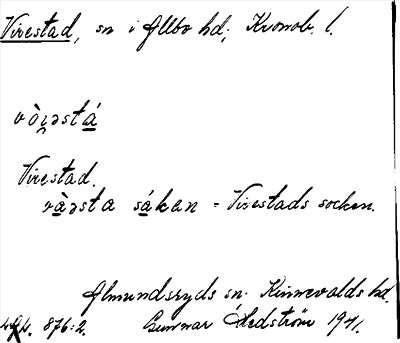 Virestad, sn i Allbo hd, Kronob. l.
vòi̯əstá
Virestad.
vàəsta sákan = Virestads socken.
Almundsryds sn. Kinnevalds hd.
876:2. Gunnar Hedström 1941.